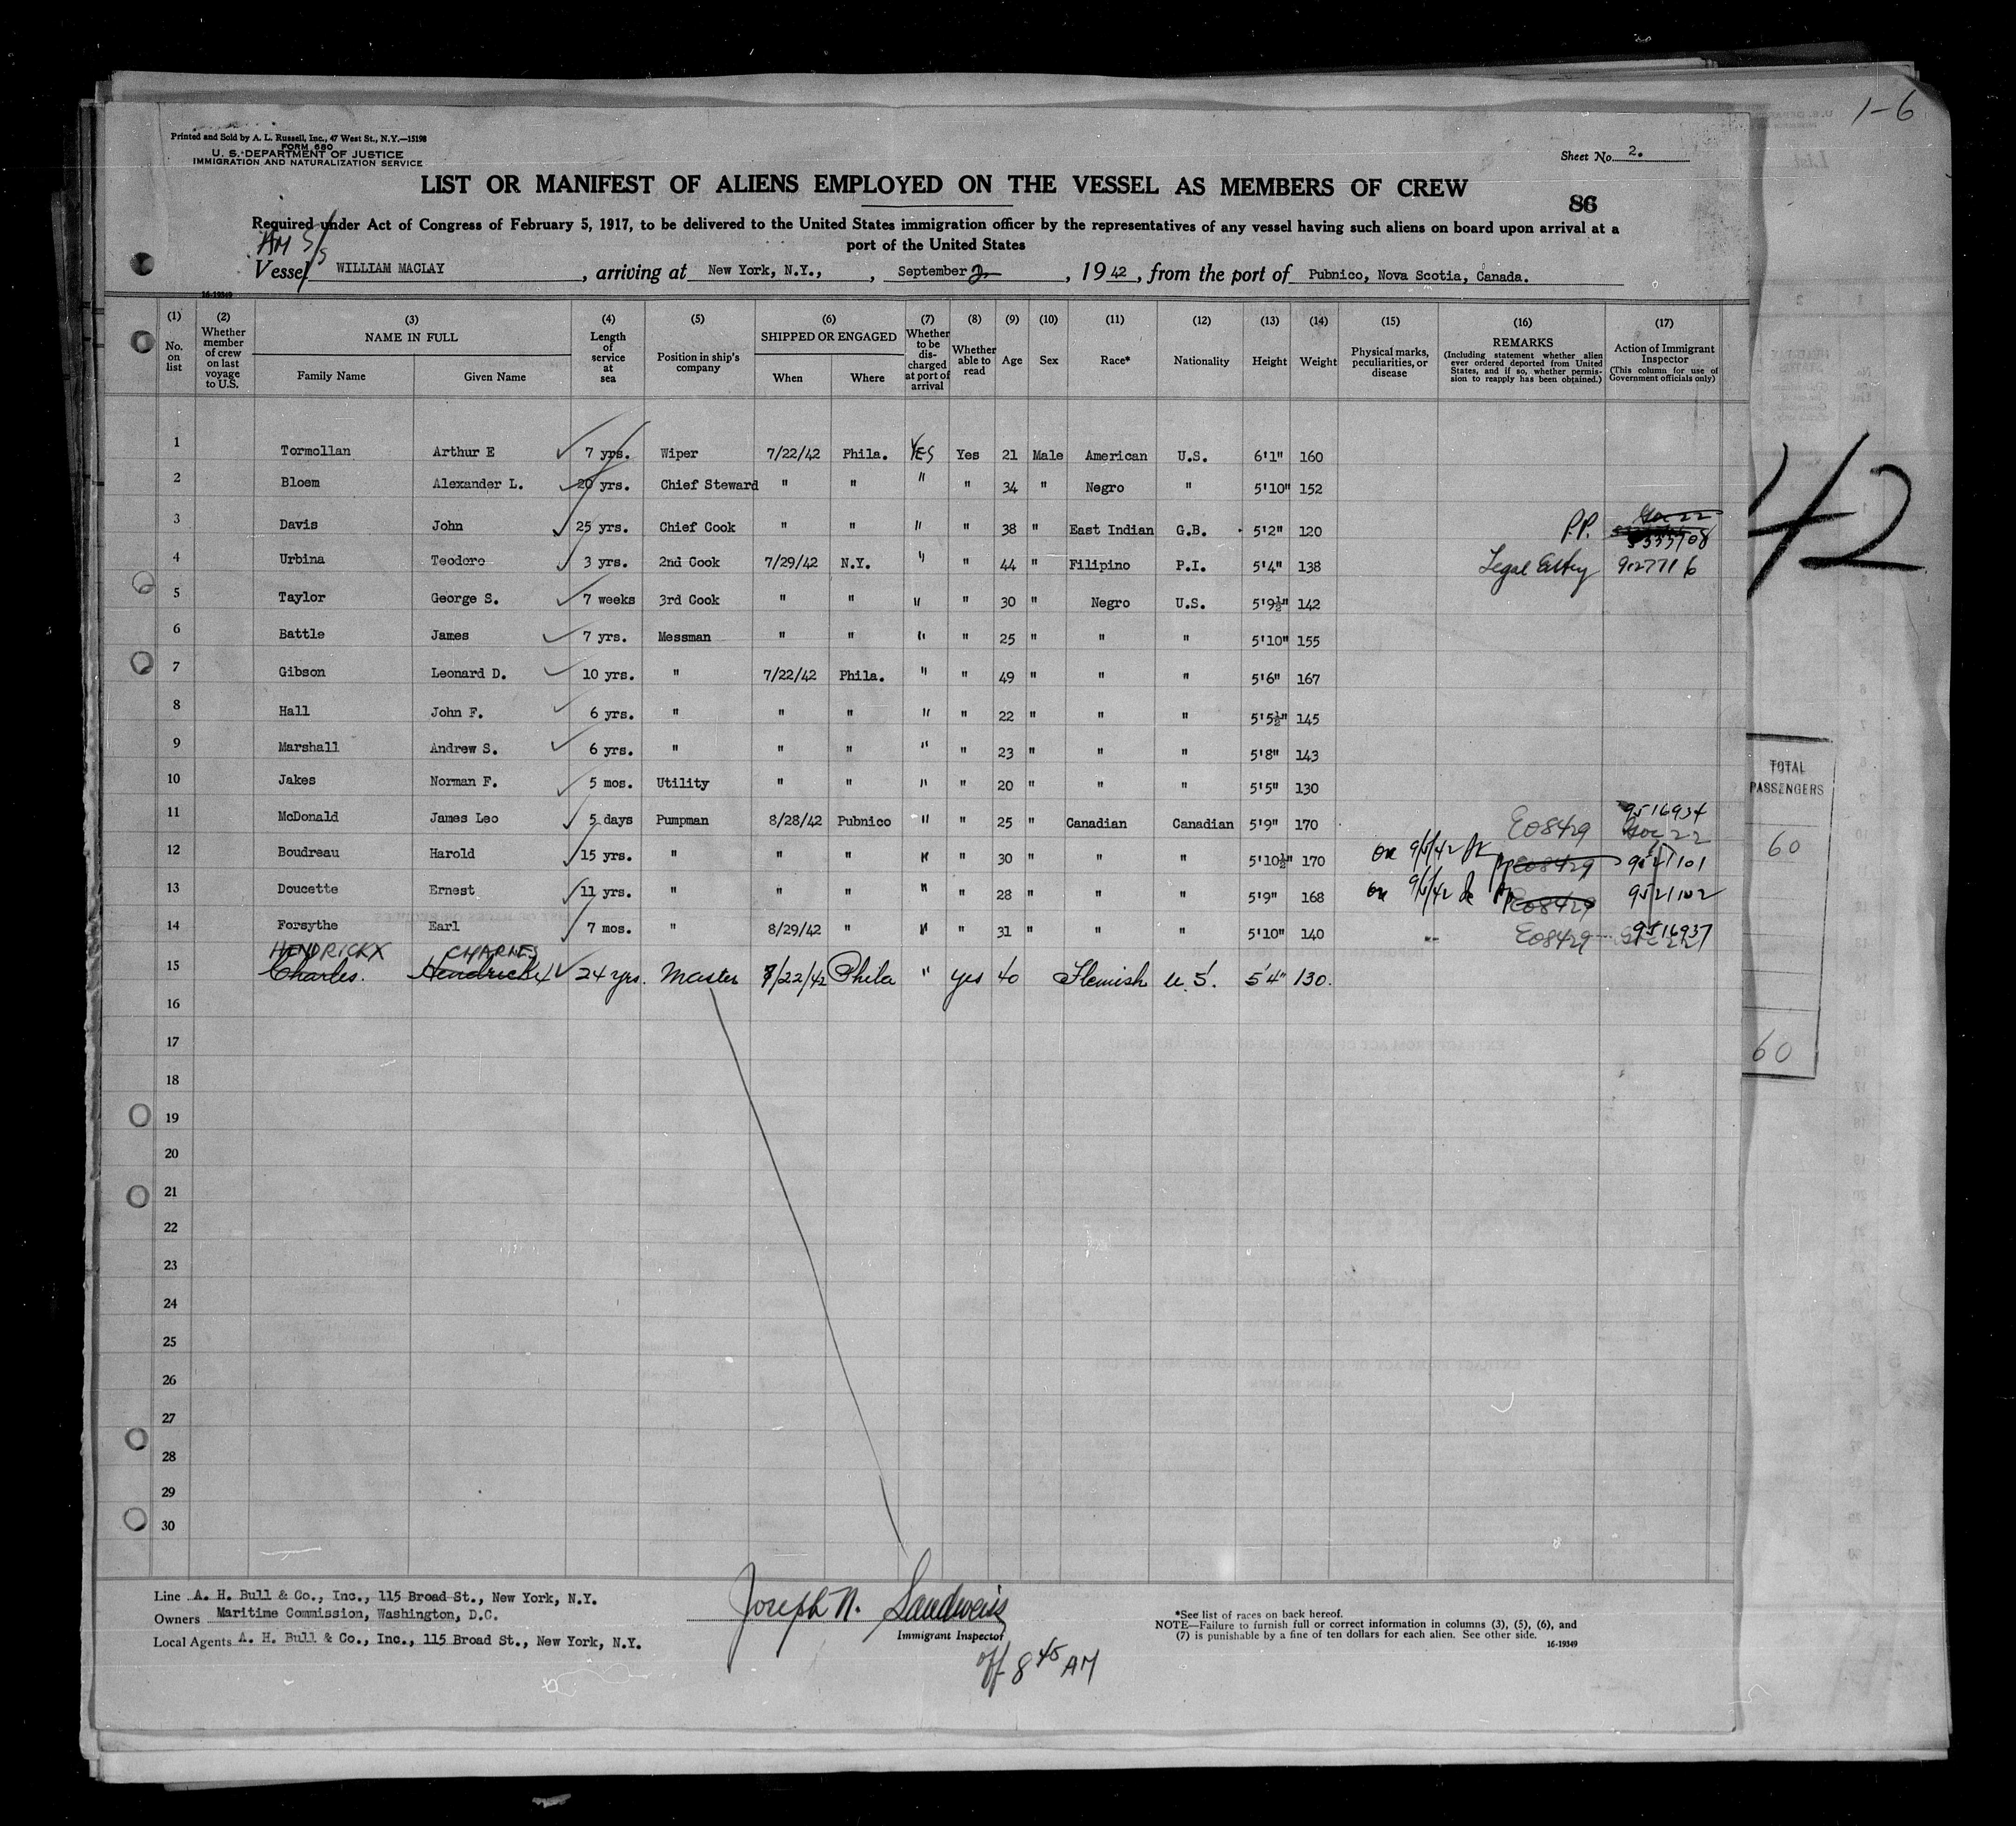 1-6
Printed and Sold by A. L. Russell, Inc., 47 West St., N.Y.—15198
FORM 680
U. S. DEPARTMENT OF JUSTICE
IMMIGRATION AND NATURALIZATION SERVICE
Sheet No. 2.
LIST OR MANIFEST OF ALIENS EMPLOYED ON THE VESSEL AS MEMBERS OF CREW
86
Required under Act of Congress of February 5, 1917, to be delivered to the United States immigration officer by the representatives of any vessel having such aliens on board upon arrival at a
port of the United States
Am S/S
Vessel WILLIAM MACLAY, arriving at New York, N.Y., September 2, 1942, from the port of Pubnico, Nova Scotia, Canada.
16-19349
(1) No. on list
(2) Whether member of crew on last voyage to U.S.
(3) NAME IN FULL Family Name Given Name
(4) Length of service at sea
(5) Position in ship's company
(6) SHIPPED OR ENGAGED When Where
(7) Whether to be discharged at port of arrival
(8) Whether able to read
(9) Age
(10) Sex
(11) Race*
(12) Nationality
(13) Height
(14) Weight
(15) Physical marks, peculiarities, or disease
(16) REMARKS (Including statement whether alien ever ordered deported from United States, and if so, whether permission to reapply has been obtained.)
(17) Action of Immigrant Inspector (This column for use of Government officials only)
1 Tormollan Arthur E 7 yrs. Wiper 7/22/42 Phila. YES Yes 21 Male American U.S. 6'1" 160
2 Bloem Alexander L. 20 yrs. Chief Steward " " " " 34 " Negro " 5'10" 152
3 Davis John 25 yrs. Chief Cook " " " " 38 " East Indian G.B. 5'2" 120 P.P.
4 Urbina Teodoro 3 yrs. 2nd Cook 7/29/42 N.Y. " " 44 " Filipino P.I. 5'4" 138 Legal Entry 9127716
5 Taylor George S. 7 weeks 3rd Cook " " " " 30 " Negro U.S. 5'9½" 142
6 Battle James 7 yrs. Messman " " " " 25 " " " 5'10" 155
7 Gibson Leonard D. 10 yrs. " 7/22/42 Phila. " " 49 " " " 5'6" 167
8 Hall John F. 6 yrs. " " " " " 22 " " " 5'5½" 145
9 Marshall Andrew S. 6 yrs. " " " " " 23 " " " 5'8" 143
10 Jakes Norman F. 5 mos. Utility " " " " 20 " " " 5'5" 130
11 McDonald James Leo 5 days Pumpman 8/28/42 Pubnico " " 25 " Canadian Canadian 5'9" 170 E08429 9516934
12 Boudreau Harold 15 yrs. " " " " " 30 " " " 5'10½" 170 on 9/5/42 E08429 9521101
13 Doucette Ernest 11 yrs. " " " " " 28 " " " 5'9" 168 on 9/5/42 E08429 9521102
14 Forsythe Earl 7 mos. " 8/29/42 " " " 31 " " " 5'10" 140 E08429 9516937
HENDRICKX CHARLES
15 Charles. Hendrickx 24 yrs. Master 7/22/42 Phila " yes 40 Flemish U.S. 5'4" 130.
16
17
18
19
20
21
22
23
24
25
26
27
28
29
30
42
TOTAL
PASSENGERS
60
60
Line A. H. Bull & Co., Inc., 115 Broad St., New York, N.Y.
Owners Maritime Commission, Washington, D.C.
Local Agents A. H. Bull & Co., Inc., 115 Broad St., New York, N.Y.
Joseph N. Sandweiss
Immigrant Inspector
off 8 45 AM
*See list of races on back hereof.
NOTE—Failure to furnish full or correct information in columns (3), (5), (6), and
(7) is punishable by a fine of ten dollars for each alien. See other side.
16-19349